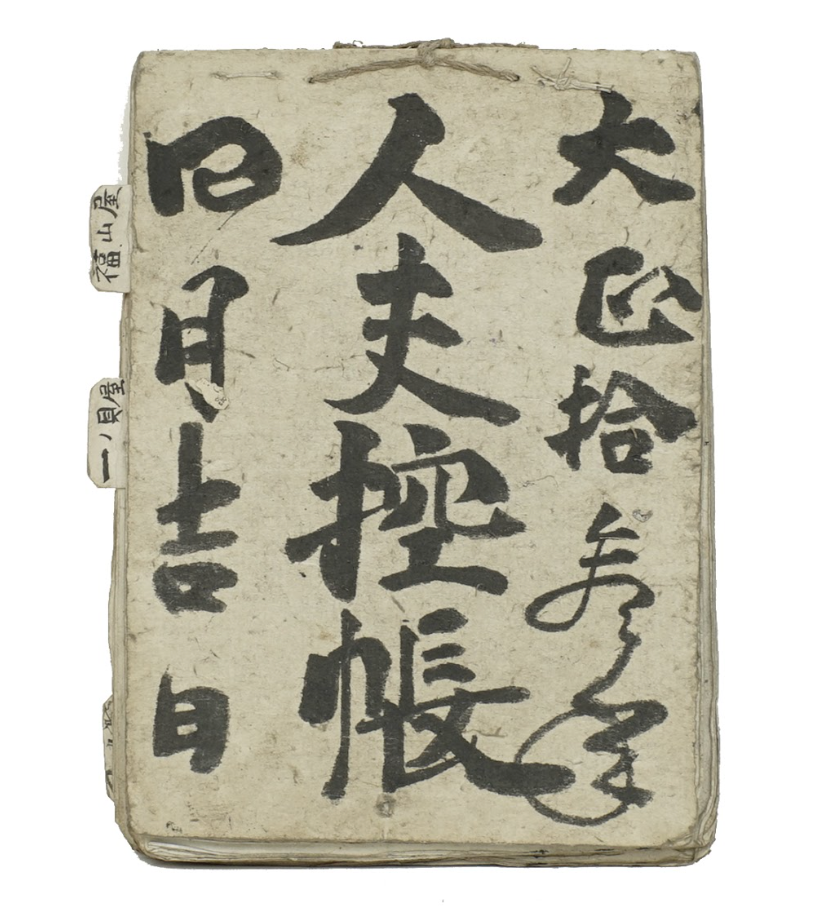 大正拾参年
人夫控帳
四月吉日
福山屋
一ノ貝屋